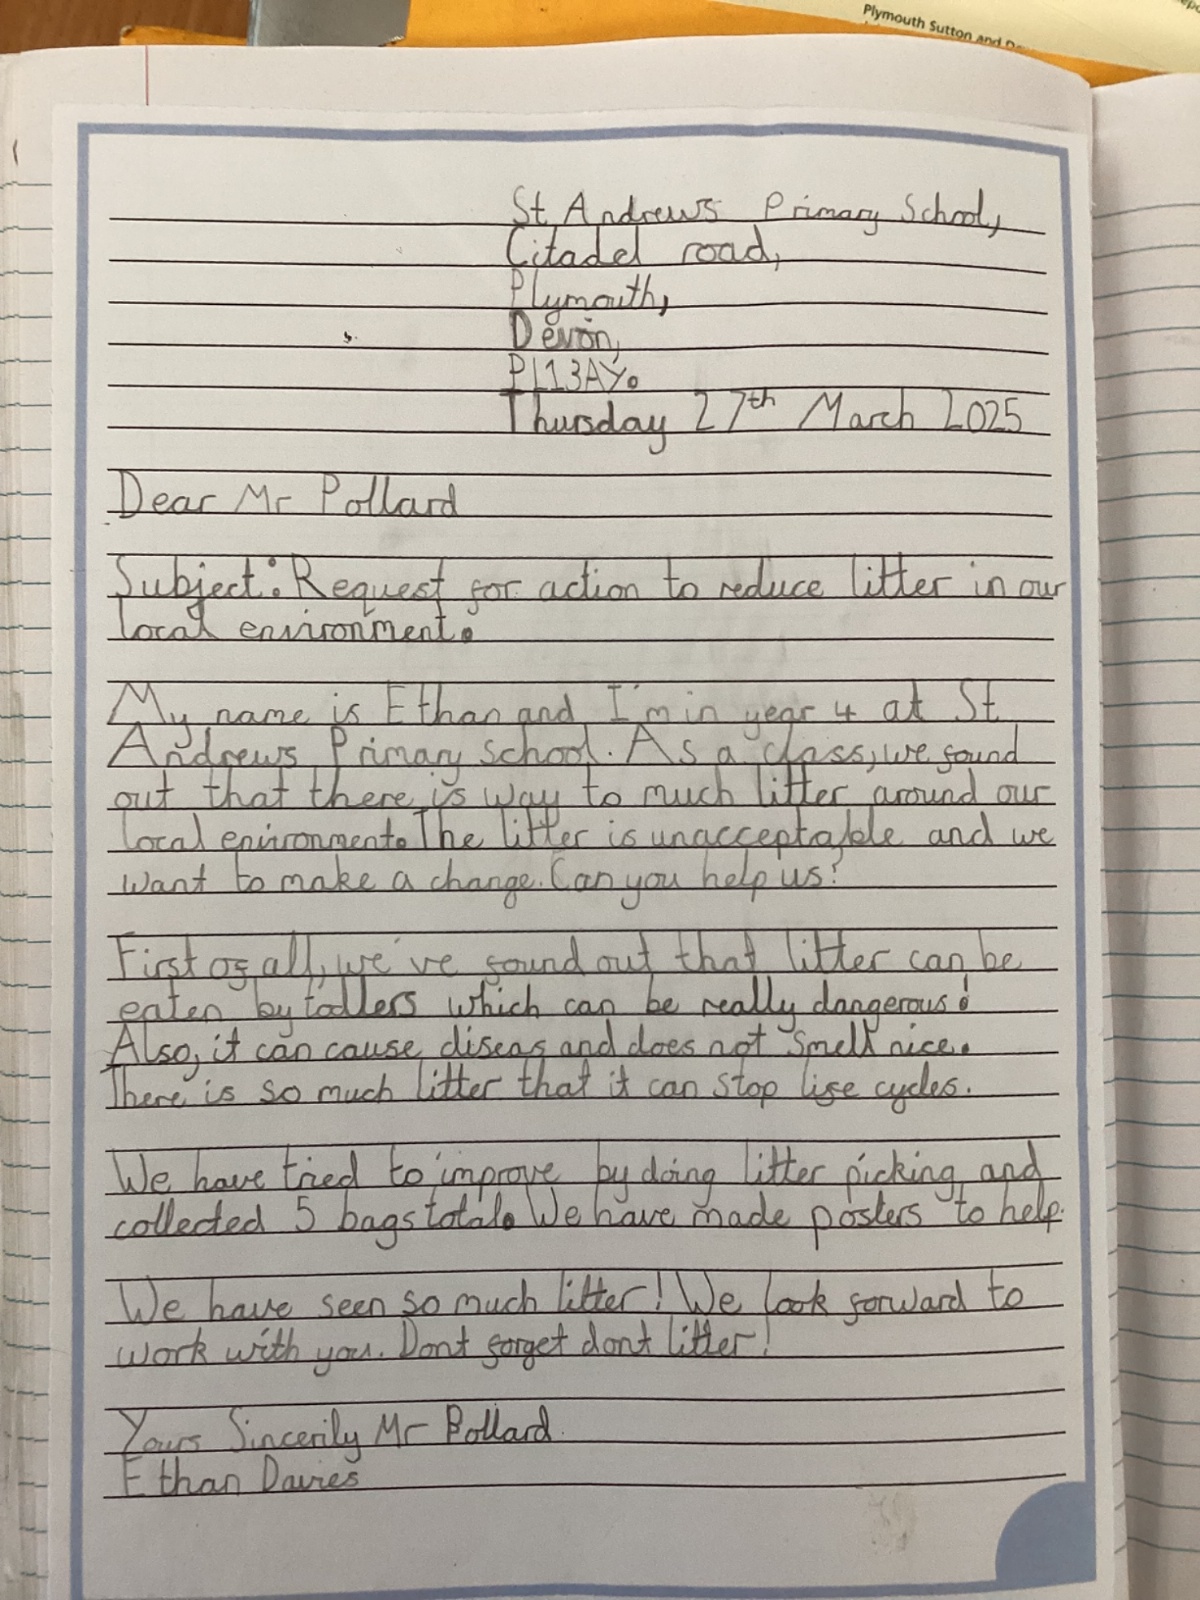 Plymouth Sutton and
St Andrews Primary School,
Citadel road,
Plymouth,
Devon,
PL13AY.
Thursday 27th March 2025
Dear Mr Pollard
Subject: Request for action to reduce litter in our
local environment.
My name is Ethan and I'm in year 4 at St
Andrews Primary School. As a class, we found
out that there is way to much litter around our
local enironment. The litter is unacceptable and we
want to make a change. Can you help us?
First of all, we've found out that litter can be
eaten by todlers which can be really dangerous!
Also, it can cause diseas and does not smell nice.
There is so much litter that it can stop life cycles.
We have tried to improve by doing litter picking and
collected 5 bags total. We have made posters to help.
We have seen so much litter! We look forward to
work with you. Dont forget dont litter!
Yours Sincerily Mr Pollard.
Ethan Davies